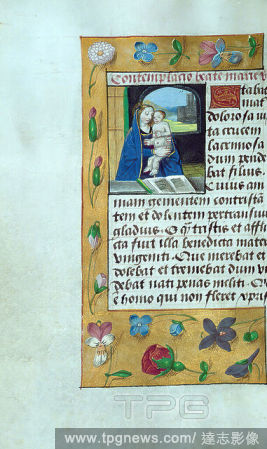 Contemplacio beate marie v
Stabat
mat
dolorosa iu
ta crucem
lacrimosa
dum pende
bat filius.
Cuius am
mam gementem contrista
tem et dolentem pertransiu
gladius. O q̄ tristis et affli
cta fuit illa benedicta mater
vnigeniti. Que merebat et
dolebat et tremebat dum v
debat nati penas incliti. 
e homo qui non fleret xpri
TPG
www.tpgnews.com / 達志影像